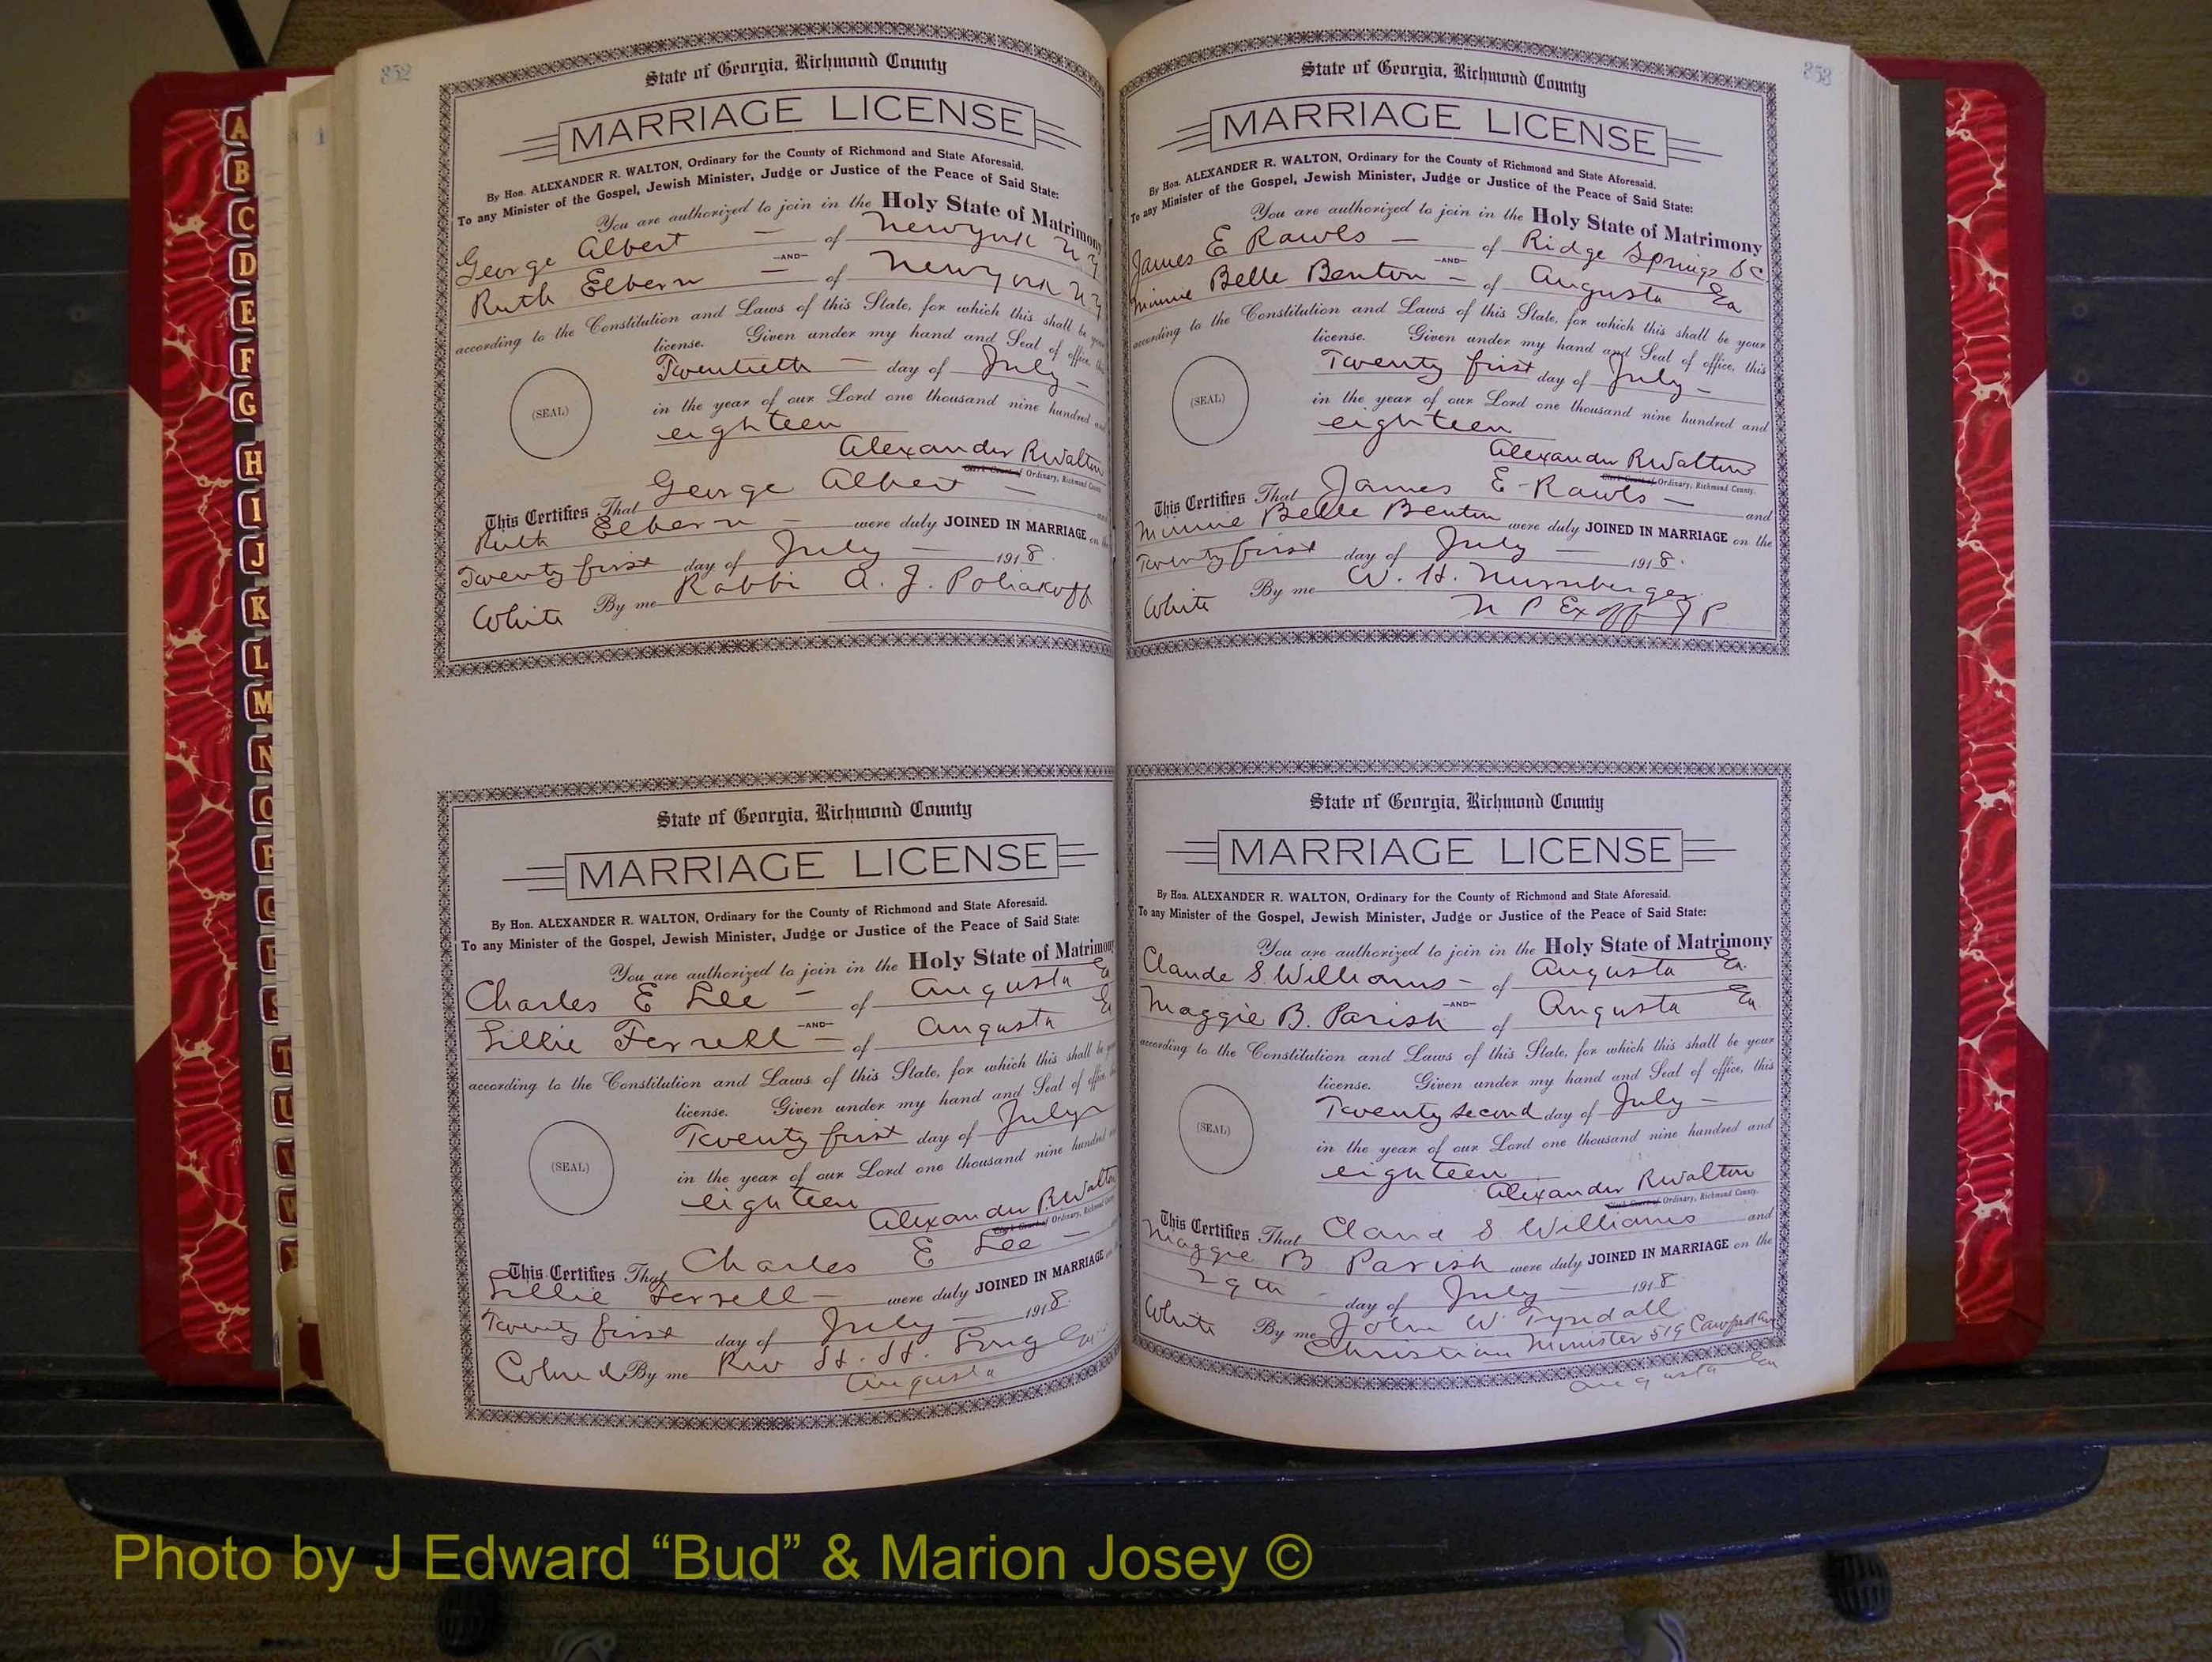 352
State of Georgia, Richmond County
MARRIAGE LICENSE
By Hon. ALEXANDER R. WALTON, Ordinary for the County of Richmond and State Aforesaid.
To any Minister of the Gospel, Jewish Minister, Judge or Justice of the Peace of Said State:
You are authorized to join in the Holy State of Matrimony
George Albert — of Newyork N Y
—AND—
Ruth Elbern — of Newyork N Y
according to the Constitution and Laws of this State, for which this shall be your
license. Given under my hand and Seal of office, this
Twentieth — day of July —
(SEAL)
in the year of our Lord one thousand nine hundred and
eighteen
Alexander R Walton
Clerk Court of Ordinary, Richmond County
This Certifies That George Albert — and
Ruth Elbern — were duly JOINED IN MARRIAGE on the
Twenty first day of July — 1918.
White By me Rabbi A. J. Poliakoff
State of Georgia, Richmond County
MARRIAGE LICENSE
By Hon. ALEXANDER R. WALTON, Ordinary for the County of Richmond and State Aforesaid.
To any Minister of the Gospel, Jewish Minister, Judge or Justice of the Peace of Said State:
You are authorized to join in the Holy State of Matrimony
Charles E Lee — of Augusta Ga
—AND—
Lillie Ferrell — of Augusta Ga
according to the Constitution and Laws of this State, for which this shall be your
license. Given under my hand and Seal of office, this
Twenty first day of July
(SEAL)
in the year of our Lord one thousand nine hundred and
eighteen
Alexander R Walton
Clerk Court of Ordinary, Richmond County
This Certifies That Charles E Lee —
Lillie Ferrell — were duly JOINED IN MARRIAGE on
Twenty first day of July — 1918.
Colored By me Rev H. H. Long Ga
Augusta
353
State of Georgia, Richmond County
MARRIAGE LICENSE
By Hon. ALEXANDER R. WALTON, Ordinary for the County of Richmond and State Aforesaid.
To any Minister of the Gospel, Jewish Minister, Judge or Justice of the Peace of Said State:
You are authorized to join in the Holy State of Matrimony
James E Rawls — of Ridge Springs SC
—AND—
Minnie Belle Benton — of Augusta Ga
according to the Constitution and Laws of this State, for which this shall be your
license. Given under my hand and Seal of office, this
Twenty first day of July —
(SEAL)
in the year of our Lord one thousand nine hundred and
eighteen
Alexander R Walton
Clerk Court of Ordinary, Richmond County.
This Certifies That James E - Rawls — and
Minnie Belle Benton were duly JOINED IN MARRIAGE on the
Twenty first day of July — 1918.
White By me W. H. Nurnberger
N P Ex off J P
State of Georgia, Richmond County
MARRIAGE LICENSE
By Hon. ALEXANDER R. WALTON, Ordinary for the County of Richmond and State Aforesaid.
To any Minister of the Gospel, Jewish Minister, Judge or Justice of the Peace of Said State:
You are authorized to join in the Holy State of Matrimony
Claude S. Williams — of Augusta Ga.
—AND—
Maggie B. Parish of Augusta Ga.
according to the Constitution and Laws of this State, for which this shall be your
license. Given under my hand and Seal of office, this
Twenty second day of July —
(SEAL)
in the year of our Lord one thousand nine hundred and
eighteen
Alexander R Walton
Clerk Court of Ordinary, Richmond County.
This Certifies That Claud S Williams and
Maggie B Parish were duly JOINED IN MARRIAGE on the
29th — day of July — 1918.
White By me John W. Tyndall
Christian Minister 519 Crawford Av
Augusta Ga
A
B
C
D
E
F
G
H
I
J
K
L
M
N
O
P
Q
R
S
T
U
V
W
Photo by J Edward “Bud” & Marion Josey ©